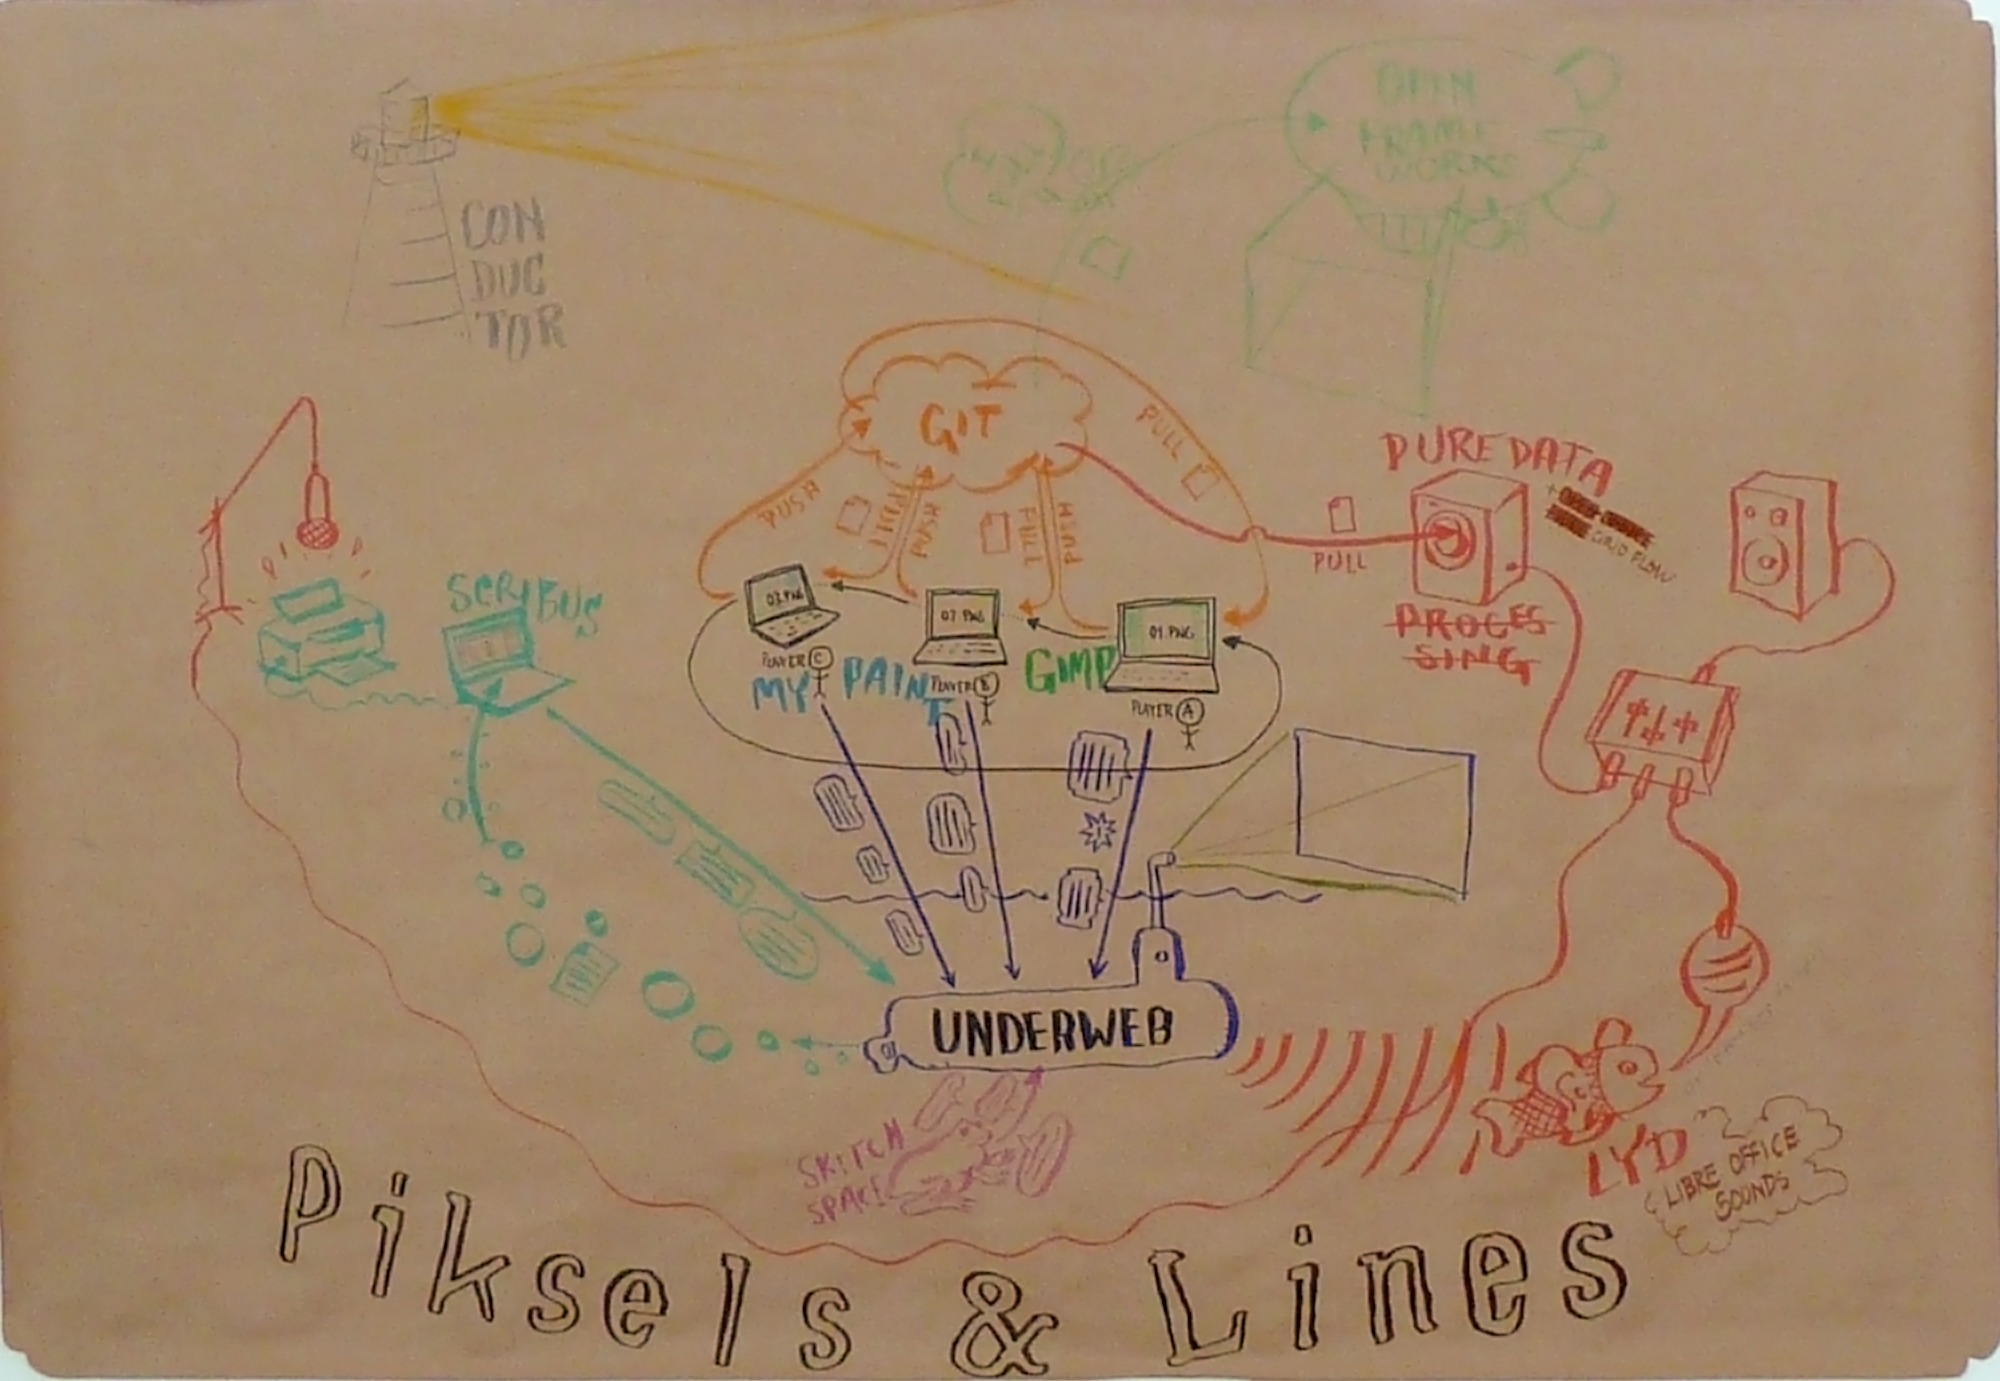 OPEN
FRAME
WORKS
CON
DUC
TOR
GIT
PULL
PUSH
PULL
PUSH
PULL
PUSH
PURE DATA
PULL
PROCES
SING
SCRIBUS
03.PNG
02.PNG
01.PNG
PLAYER C
PLAYER B
PLAYER A
MY PAINT
GIMP
UNDERWEB
SKETCH
SPACE
LYD
LIBRE OFFICE
SOUNDS
Piksels & Lines